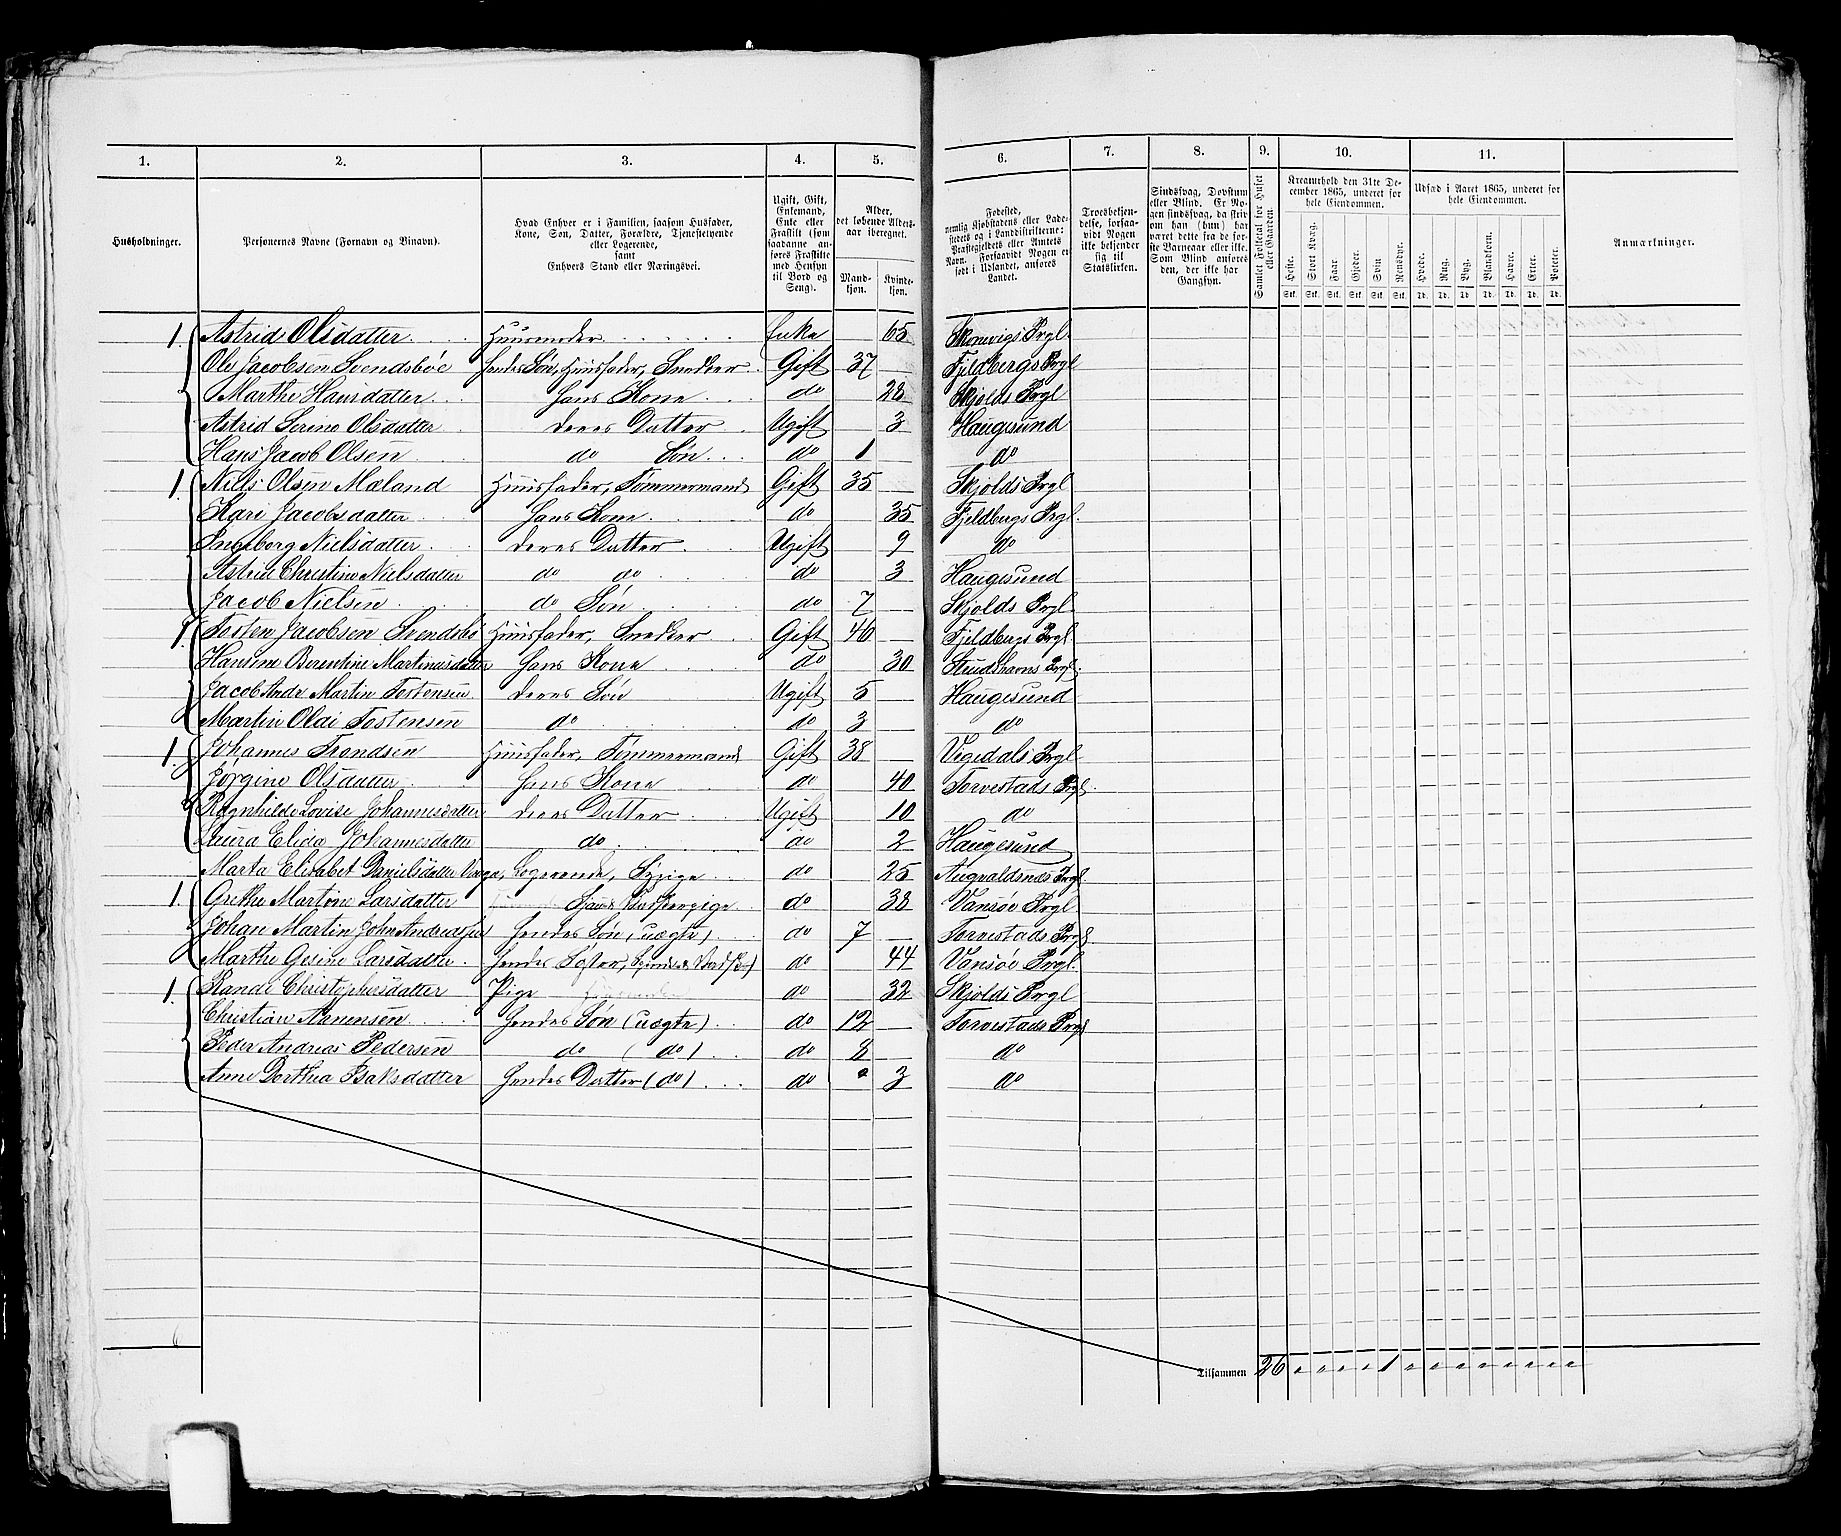 1. 2. 3. 4. 5. 6. 7. 8. 9. 10. 11.
Husholdninger.
Personernes Navne (Fornavn og Binavn).
Hvad Enhver er i Familien, saasom Husfader,
Kone, Søn, Datter, Forældre, Tjenestetyende
eller Logerende,
samt
Enhvers Stand eller Næringsvei.
Ugift, Gift,
Enkemand,
Enke eller
Fraskilt (som
saadanne an-
føres Fraskilte
med Hensyn
til Bord og
Seng).
Alder,
det løbende Alders-
aar iberegnet.
Mand-
kjøn.
Kvinde-
kjøn.
Fødested,
nemlig Kjøbstadens eller Lade-
stedets og i Landdistrikterne:
Præstegjeldets eller Amtets
Navn. Forsaavidt Nogen er
født i Udlandet, anføres
Landet.
Troesbekjen-
delse, forsaa-
vidt Nogen
ikke bekjender
sig til
Statskirken.
Sindssvag, Døvstum
eller Blind. Er No-
gen sindssvag, da skriv
om han (hun) har
været dette fra de før-
ste Barneaar eller ikke.
Som Blind anføres
den, der ikke har
Gangsyn.
Samlet Folketal for Huset
eller Gaarden.
Kreaturhold den 31te De-
cember 1865, underet for
hele Eiendommen.
Heste. Stort Kvæg. Faar. Gjeder. Svin. Rensdyr.
Stk. Stk. Stk. Stk. Stk. Stk.
Udsæd i Aaret 1865, underet for
hele Eiendommen.
Hvede. Rug. Byg. Blandkorn. Havre. Erter. Poteter.
Td. Td. Td. Td. Td. Td. Td.
Anmærkninger.
1. Astrid Olsdatter Huusmoder Enke 65 Skonevigs Prgl.
Ole Jacobsen Svendsbøe Hendes Søn, Huusfader, Snedker Gift 37 Fjeldbergs Prgl
Marthe Hansdatter hans Kone do 28 Skjolds Prgl
Astrid Serene Olsdatter deres Datter Ugift 3 Haugesund
Hans Jacob Olsen do Søn do 1 do
1. Niels Olsen Mæland Huusfader, Tømmermand Gift 35 Skjolds Prgl
Kari Jacobsdatter hans Kone do 35 Fjeldbergs Prgl.
Ingeborg Nielsdatter deres Datter Ugift 9 do
Astrid Christine Nielsdatter do do do 3 Haugesund
Jacob Nielsen do Søn do 7 Skjolds Prgl
1. Tosten Jacobsen Svendsbø Huusfader, Snedker Gift 46 Fjeldbergs Prgl
Hansine Berentine Martinusdatter hans Kone do 30 Skudshavns Prgl.
Jacob Andr Martin Tostensen deres Søn Ugift 5 Haugesund
Martin Olai Tostensen do do 3 do
1. Johannes Trondsen Huusfader, Tømmermand Gift 38 Vigedals Prgl
Jørgine Olsdatter hans Kone do 40 Torvestads Prgl.
Ragnhilde Lovise Johannesdatter deres Datter Ugift 10 do
Laura Elida Johannesdatter do do 2 Haugesund
Marta Elisabet Danielsdatter Logerende, Sypige do 25 Augvaldsnæs Prgl
1. Grethe Martine Larsdatter do 38 Vansøe Prgl
Johan Martin John Andreas hendes Søn (uægte) do 7 Torvestads Prgl.
Marthe Gesine Larsdatter hendes Søster, do 44 Vansøe Prgl.
1. Rande Christophersdatter Pige do 32 Skjolds Prgl
Christian Aanensen hendes Søn (uægte) do 12 Torvestads Prgl
Peder Andreas Pedersen do (do) do 8 do
Anne Dorthea Isaksdatter hendes Datter (do) do 3 do
6
Tilsammen 26 " " " " 1 " " " " " " " "